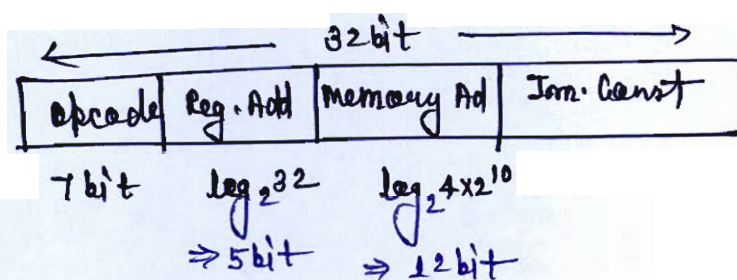 32 bit
opcode Reg. Add Memory Ad Imm. Const
7 bit log₂32 log₂4×2¹⁰
⇒ 5 bit ⇒ 12 bit